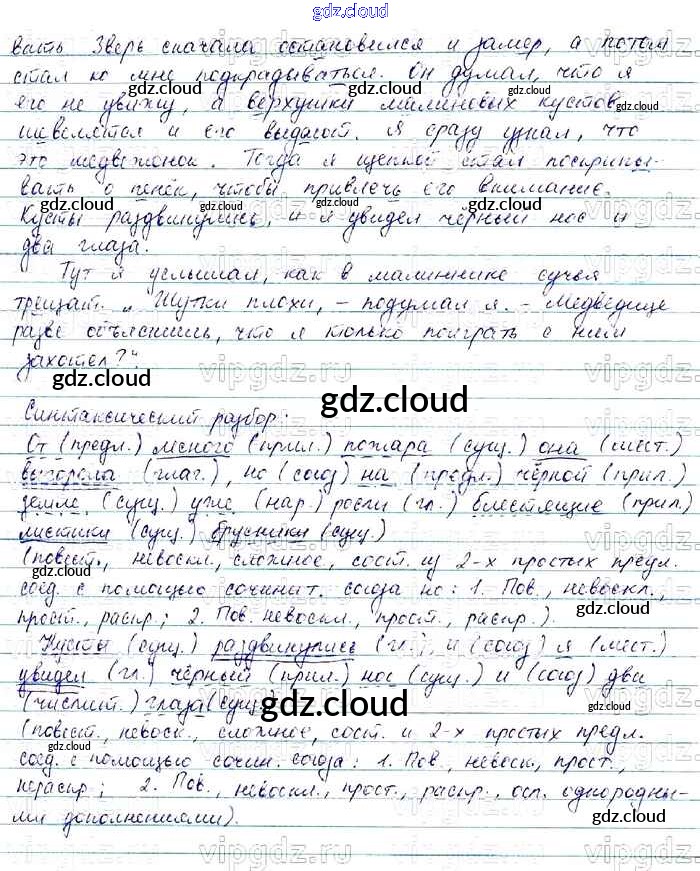 gdz.cloud
вать Зверь сначала остановился и замер, а потом
стал ко мне подкрадываться. Он думал, что я
его не увижу, а верхушки малиновых кустов
шевелятся и его выдают. Я сразу узнал, что
это медвежонок. Тогда я щепкой стал поскрипы-
вать о пенёк, чтобы привлечь его внимание.
Кусты раздвинулись, и я увидел чёрный нос и
два глаза.
Тут я услышал, как в малиннике сучья
трещат. „Шутки плохи, – подумал я. – Медведице
разве объяснишь, что я только поиграть с ним
захотел?“
Синтаксический разбор:
От (предл.) лесного (прил.) пожара (сущ.) она (мест.)
выгорела (глаг.), но (союз) на (предл.) чёрной (прил.)
земле (сущ.) уже (нар.) росли (гл.) блестящие (прил.)
листики (сущ.) брусники (сущ.)
(повест., невоскл., сложное, сост. из 2-х простых предл.
соед. с помощью сочинит. союза но: 1. Пов., невоскл.,
прост., распр.; 2. Пов. невоскл., прост., распр.).
Кусты (сущ.) раздвинулись (гл.), и (союз) я (мест.)
увидел (гл.) чёрный (прил.) нос (сущ.) и (союз) два
(числит.) глаза (сущ.)
(повест., невоск., сложное, сост. и 2-х простых предл.
соед. с помощью сочин. союза: 1. Пов., невоск., прост.,
нераспр; 2. Пов., невоскл., прост., распр., осл. однородны-
ми дополнениями).